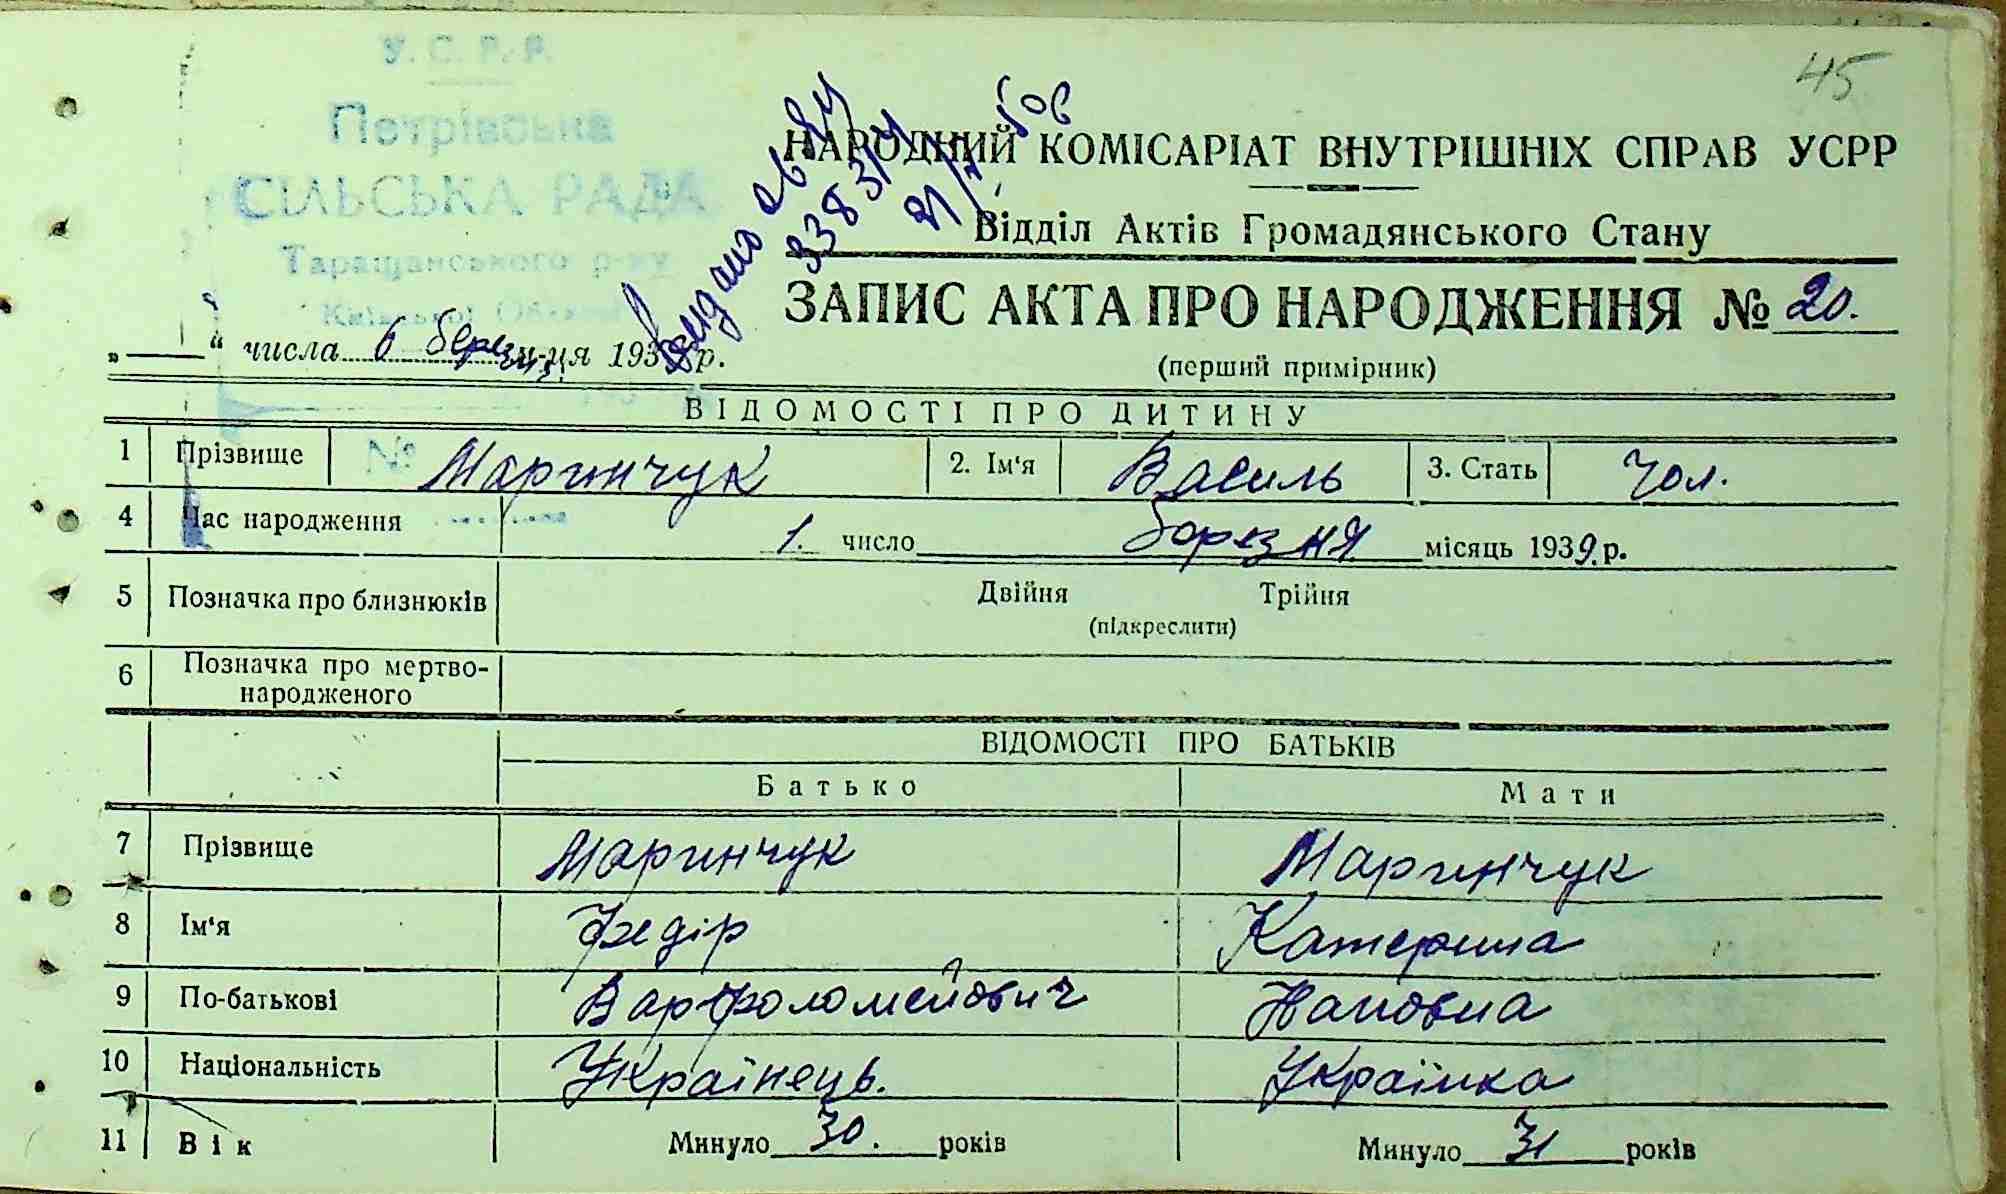 45
У. С. Р. Р.
Петрівська
СІЛЬСЬКА РАДА
Таращанського р-ну
Київської Області
№
Видано
НАРОДНИЙ КОМІСАРІАТ ВНУТРІШНІХ СПРАВ УСРР
Відділ Актів Громадянського Стану
ЗАПИС АКТА ПРО НАРОДЖЕННЯ № 20.
(перший примірник)
„ “ числа 6 березня м-ця 193 р.
ВІДОМОСТІ ПРО ДИТИНУ
1 Прізвище Маринчук 2. Ім‘я Василь 3. Стать Чол.
4 Час народження 1. число березня місяць 1939. р.
5 Позначка про близнюків Двійня Трійня
(підкреслити)
6 Позначка про мертво-
народженого
ВІДОМОСТІ ПРО БАТЬКІВ
Батько Мати
7 Прізвище Маринчук Маринчук
8 Ім‘я Федір Катерина
9 По-батькові Варфоломейович
10 Національність Українець. Українка
11 Вік Минуло 30. років Минуло 31 років